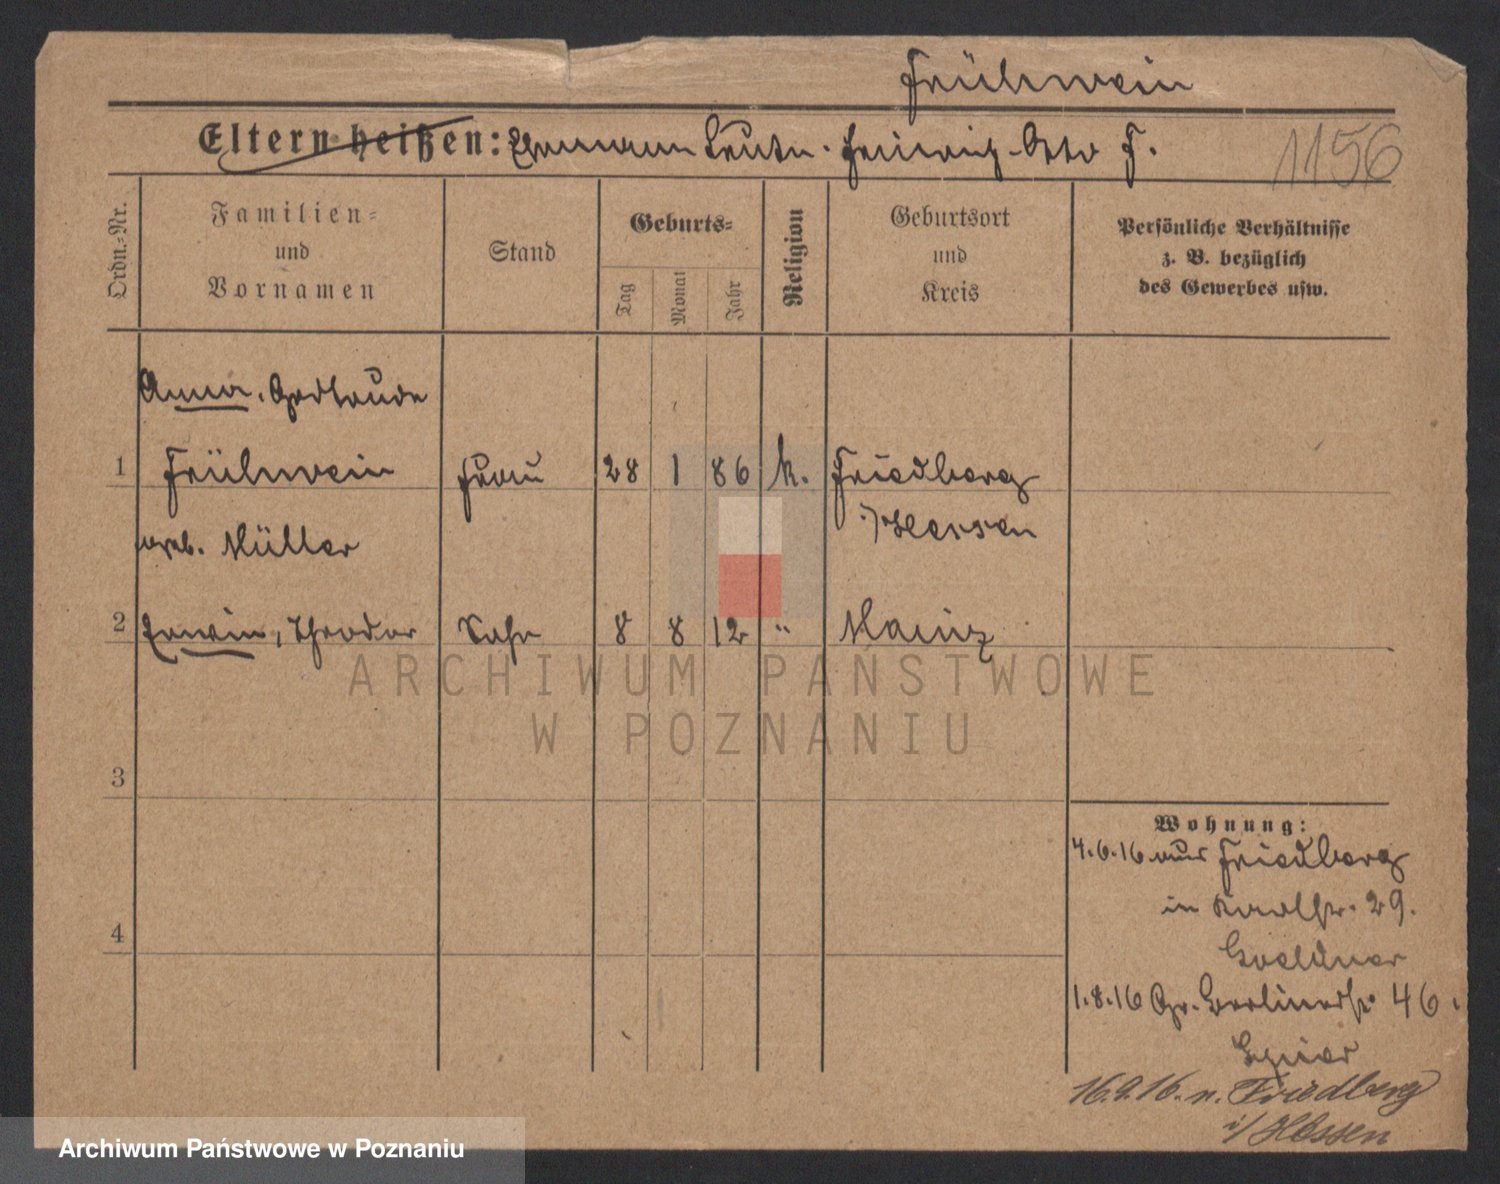 Frühwein
Eltern heißen: Ehemann Leutn. Heinrich Otto F. 1156
Ordn.=Nr.
Familien=
und
Vornamen
Stand
Geburts=
Tag
Monat
Jahr
Religion
Geburtsort
und
Kreis
Persönliche Verhältnisse
z. B. bezüglich
des Gewerbes usw.
Anna, Gertraude
1 Frühwein Frau 28 1 86 k. Friedberg
i/Hessen
geb. Müller
2 Erwin, Theodor Sohn 8 8 12 " Mainz
3
4
Wohnung:
4.6.16 aus Friedberg
in Karlstr. 29.
1.8.16 Gr. Berlinerstr. 46.
16.9.16. n. Friedberg
i/Hessen
ARCHIWUM PAŃSTWOWE
W POZNANIU
Archiwum Państwowe w Poznaniu